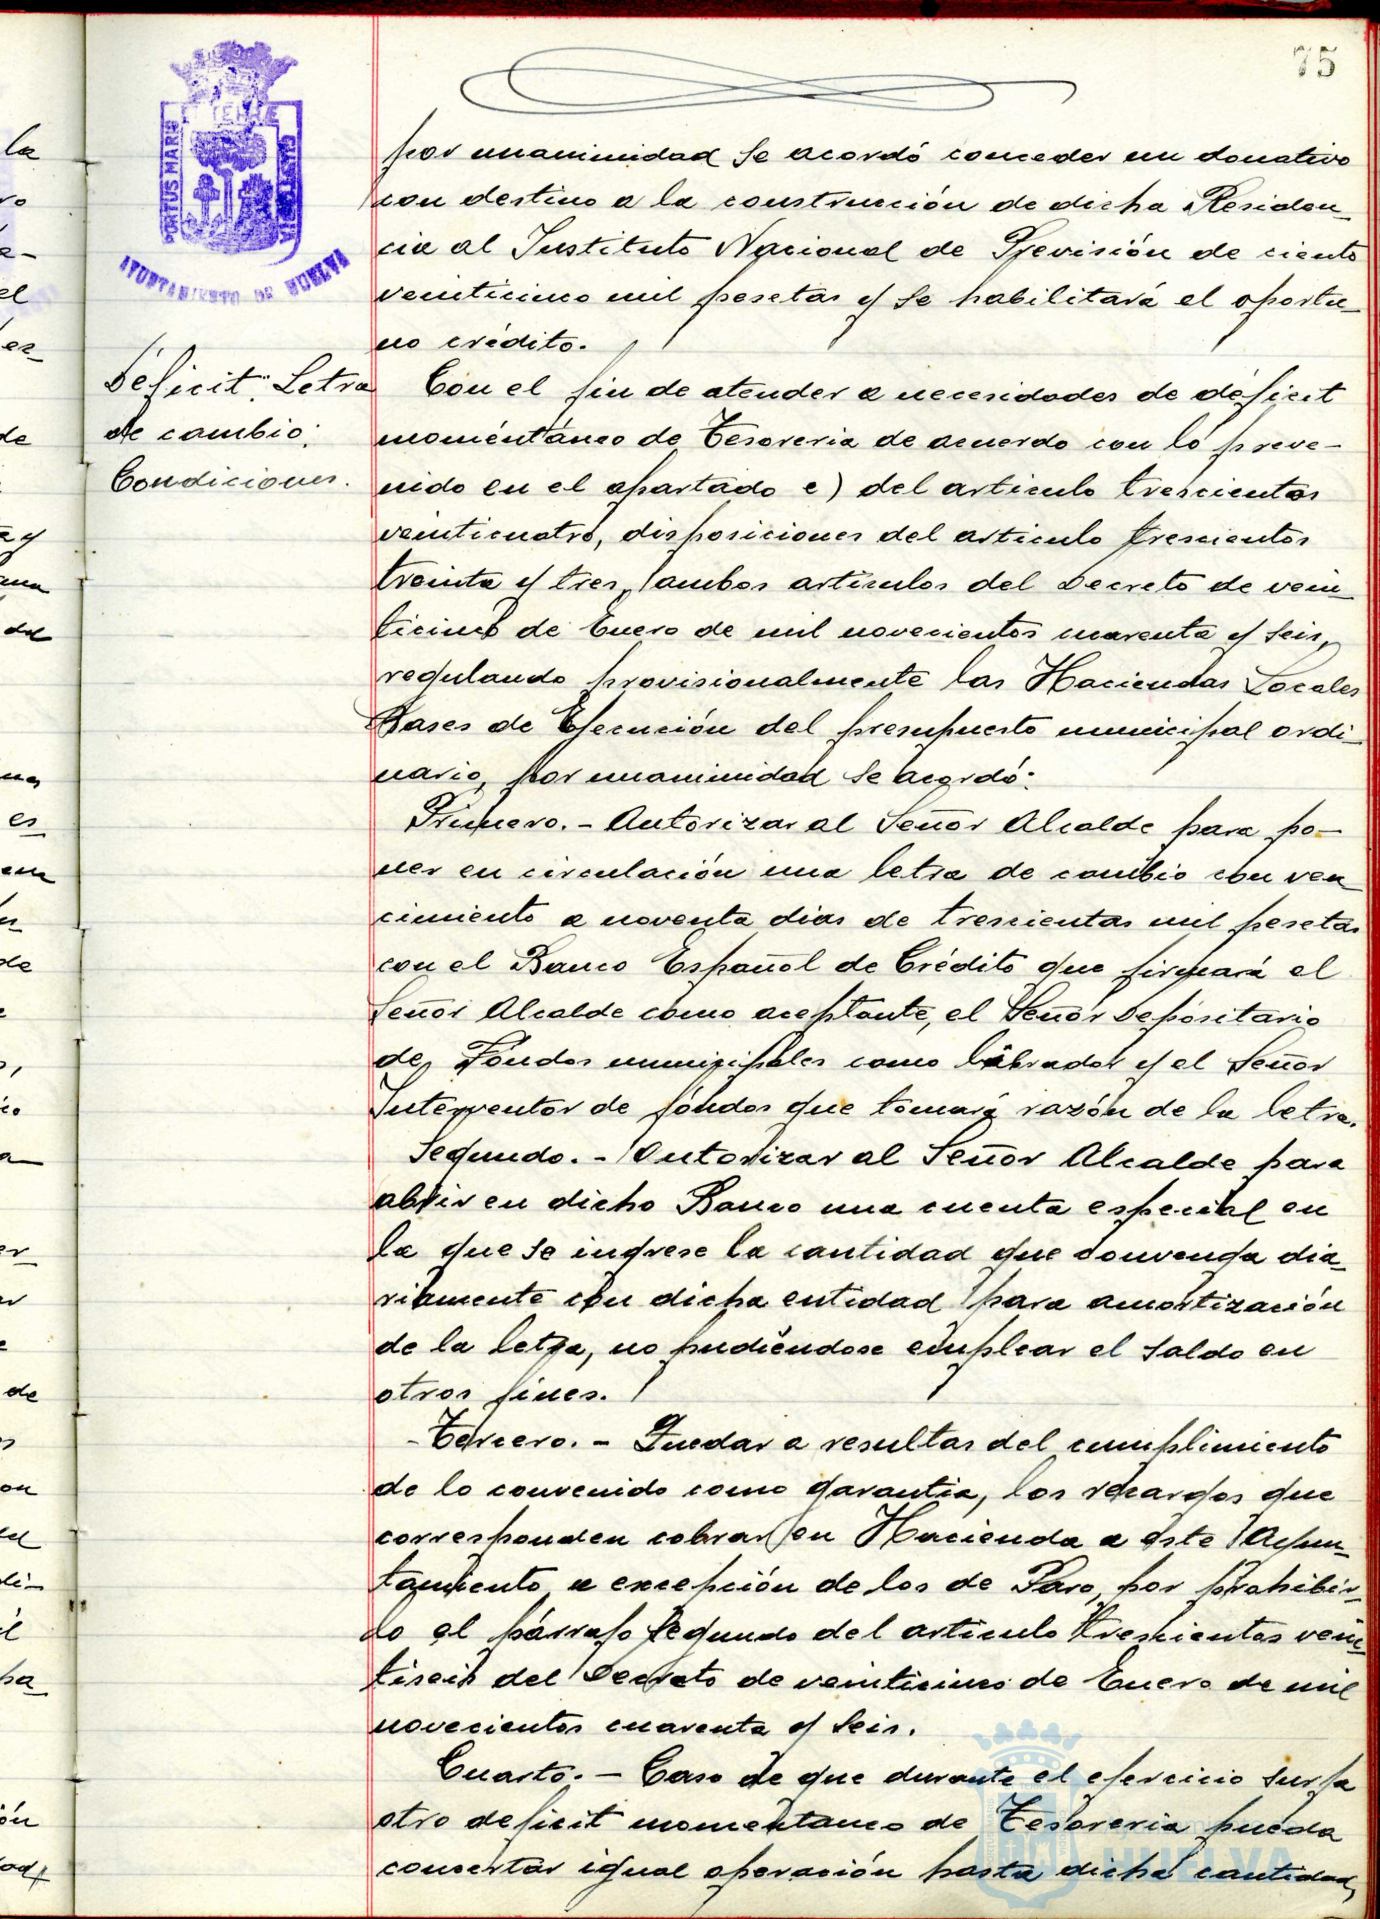 75
PORTUS MARIS
ET TERRAE
CUSTODIA
AYUNTAMIENTO DE HUELVA
por unanimidad se acordó conceder un donativo
con destino a la construcción de dicha Residen_
cia al Instituto Nacional de Previsión de ciento
veinticinco mil pesetas y se habilitará el oportu_
no crédito.
Déficit: Letra
de cambio:
Condiciones.
Con el fin de atender a necesidades de déficit
momentáneo de Tesoreria de acuerdo con lo preve-
nido en el apartado e) del articulo trescientos
veinticuatro, disposiciones del articulo trescientos
treinta y tres, ambos articulos del Decreto de vein_
ticinco de Enero de mil novecientos cuarenta y seis,
regulando provisionalmente las Haciendas Locales
Bases de Ejecución del presupuesto municipal ordi_
nario, por unanimidad se acordó:
Primero.- Autorizar al Señor Alcalde para po-
ner en circulación una letra de cambio con ven_
cimiento a noventa dias de trescientas mil pesetas
con el Banco Español de Crédito que firmará el
Señor Alcalde como aceptante, el Señor Depositario
de Fondos municipales como librador y el Señor
Interventor de fondos que tomará razón de la letra.
Segundo.- Autorizar al Señor Alcalde para
abrir en dicho Banco una cuenta especial en
la que se ingrese la cantidad que convenga dia_
riamente con dicha entidad para amortización
de la letra, no pudiéndose emplear el saldo en
otros fines.
-Tercero.- Quedar a resultas del cumplimiento
de lo convenido como garantia, los recargos que
corresponden cobrar en Hacienda a este Ayun_
tamiento, a excepción de los de Paro, por prohibir_
lo el párrafo segundo del articulo trescientos vein_
tiseis del Decreto de veinticinco de Enero de mil
novecientos cuarenta y seis.
Cuarto.- Caso de que durante el ejercicio surja
otro deficit momentaneo de Tesoreria pueda
concertar igual operación hasta dicha cantidad,
HUELVA